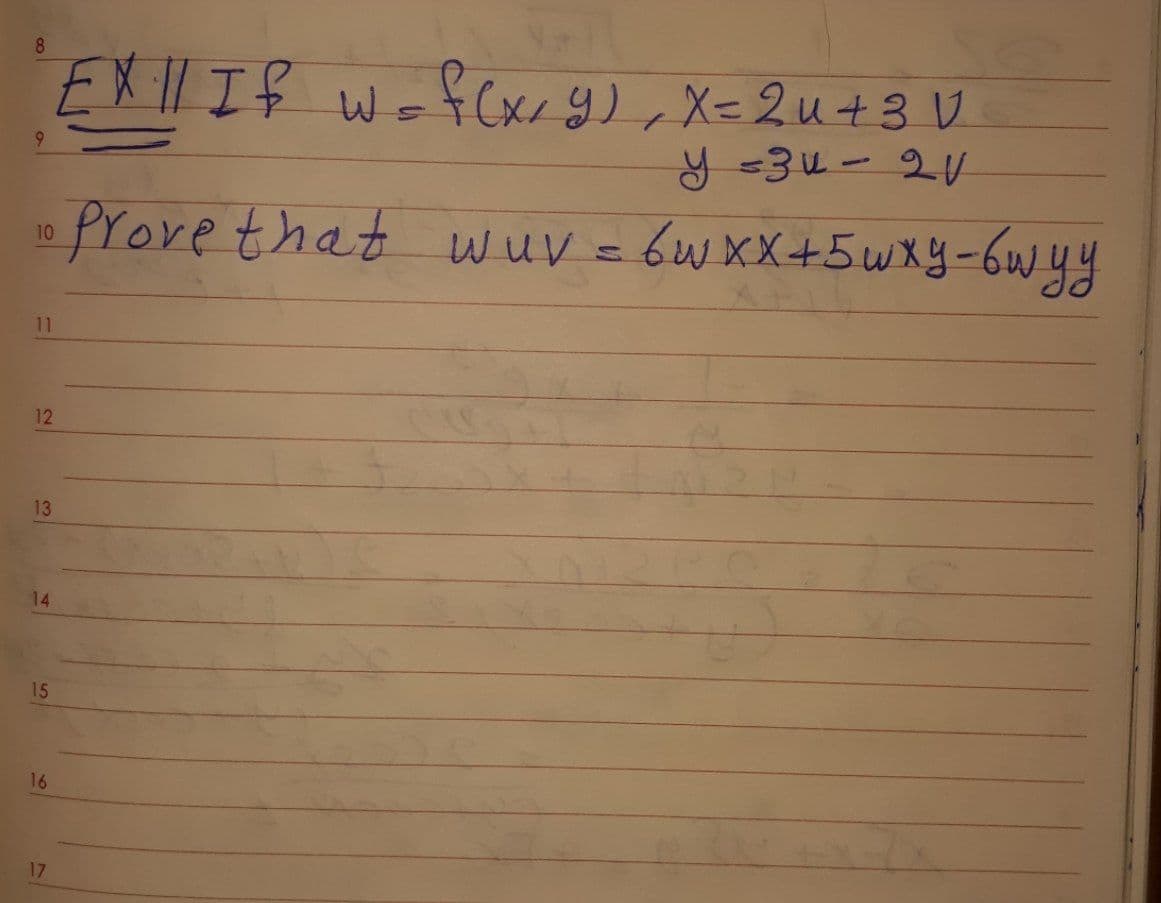 8
EX || If w = f(x, y), x = 2u + 3v
9
y = 3u - 2v
10 Prove that wuv = 6wxx + 5wxy - 6wyy
11
12
13
14
15
16
17